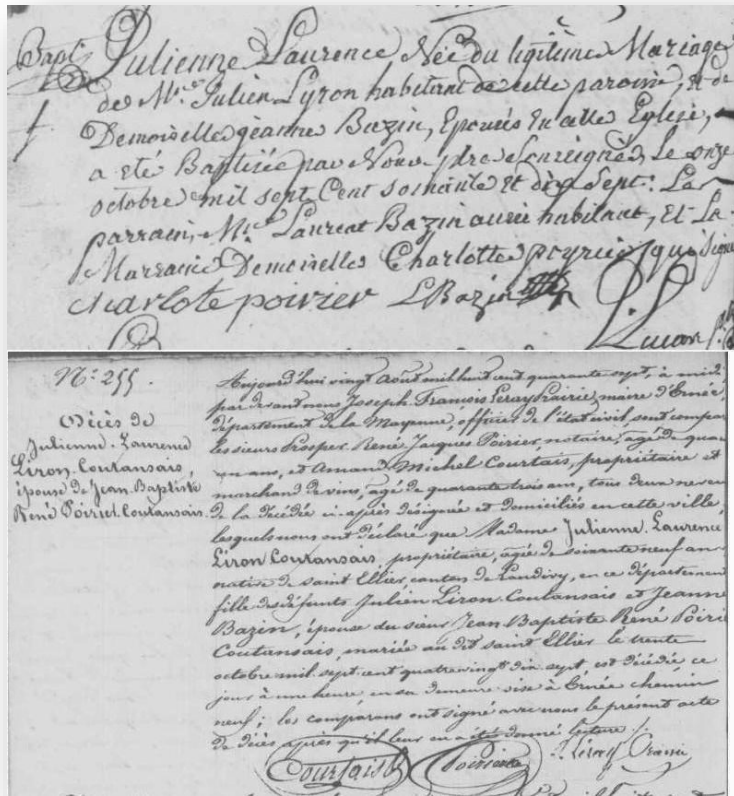 Bapt
Julienne Laurence, Née du legitime Mariage
de Mr. Julien Lyron habitant de cette paroisse, et de
Demoiselle jeanne Bazin, Epousés En cette Eglise,
a eté Baptisée par Nous ptre soussigné, Le onze
octobre mil sept Cent soixante et dix Sept: Le
parrain, Mr. Laurent Bazin aussi habitant, Et La
Marraine Demoiselle Charlotte poyrier, qui signe
charlote poirier LBazin
N.° 255.
Décès de
Julienne Laurence
Liron Coutansais,
épouse de Jean Baptiste
René Poirier Coutansais.
Aujourd'hui vingt Août mil huit cent quarante sept, à midi
par devant nous Joseph François Leray Prairie, maire d'Ernée,
département de la Mayenne, officier de l'état civil, sont compa
les sieurs Prosper René Jacques Poirier, notaire, âgé de qua
un ans, et Amand Michel Courtais, propriétaire et
marchand de vins, âgé de quarante trois ans, tous deux neveu
de la décédée ci-après désignée et domiciliés en cette ville,
lesquels nous ont déclaré que Madame Julienne Laurence
Liron Coutansais, propriétaire, âgée de soixante neuf ans
native de saint Ellier, canton de Landivy, en ce département
fille des défunts Julien Liron Coutansais et Jeanne
Bazin, épouse du sieur Jean Baptiste René Poiri
Coutansais, mariée au dit saint Ellier le trente
octobre mil sept cent quatre vingt dix sept, est décédée ce
jour à une heure en sa demeure sise à Ernée chemin
neuf; les comparans ont signé avec nous le présent acte
de décès après qu'il leur en a été donné lecture.
Courtais Poirier Leray Prairie